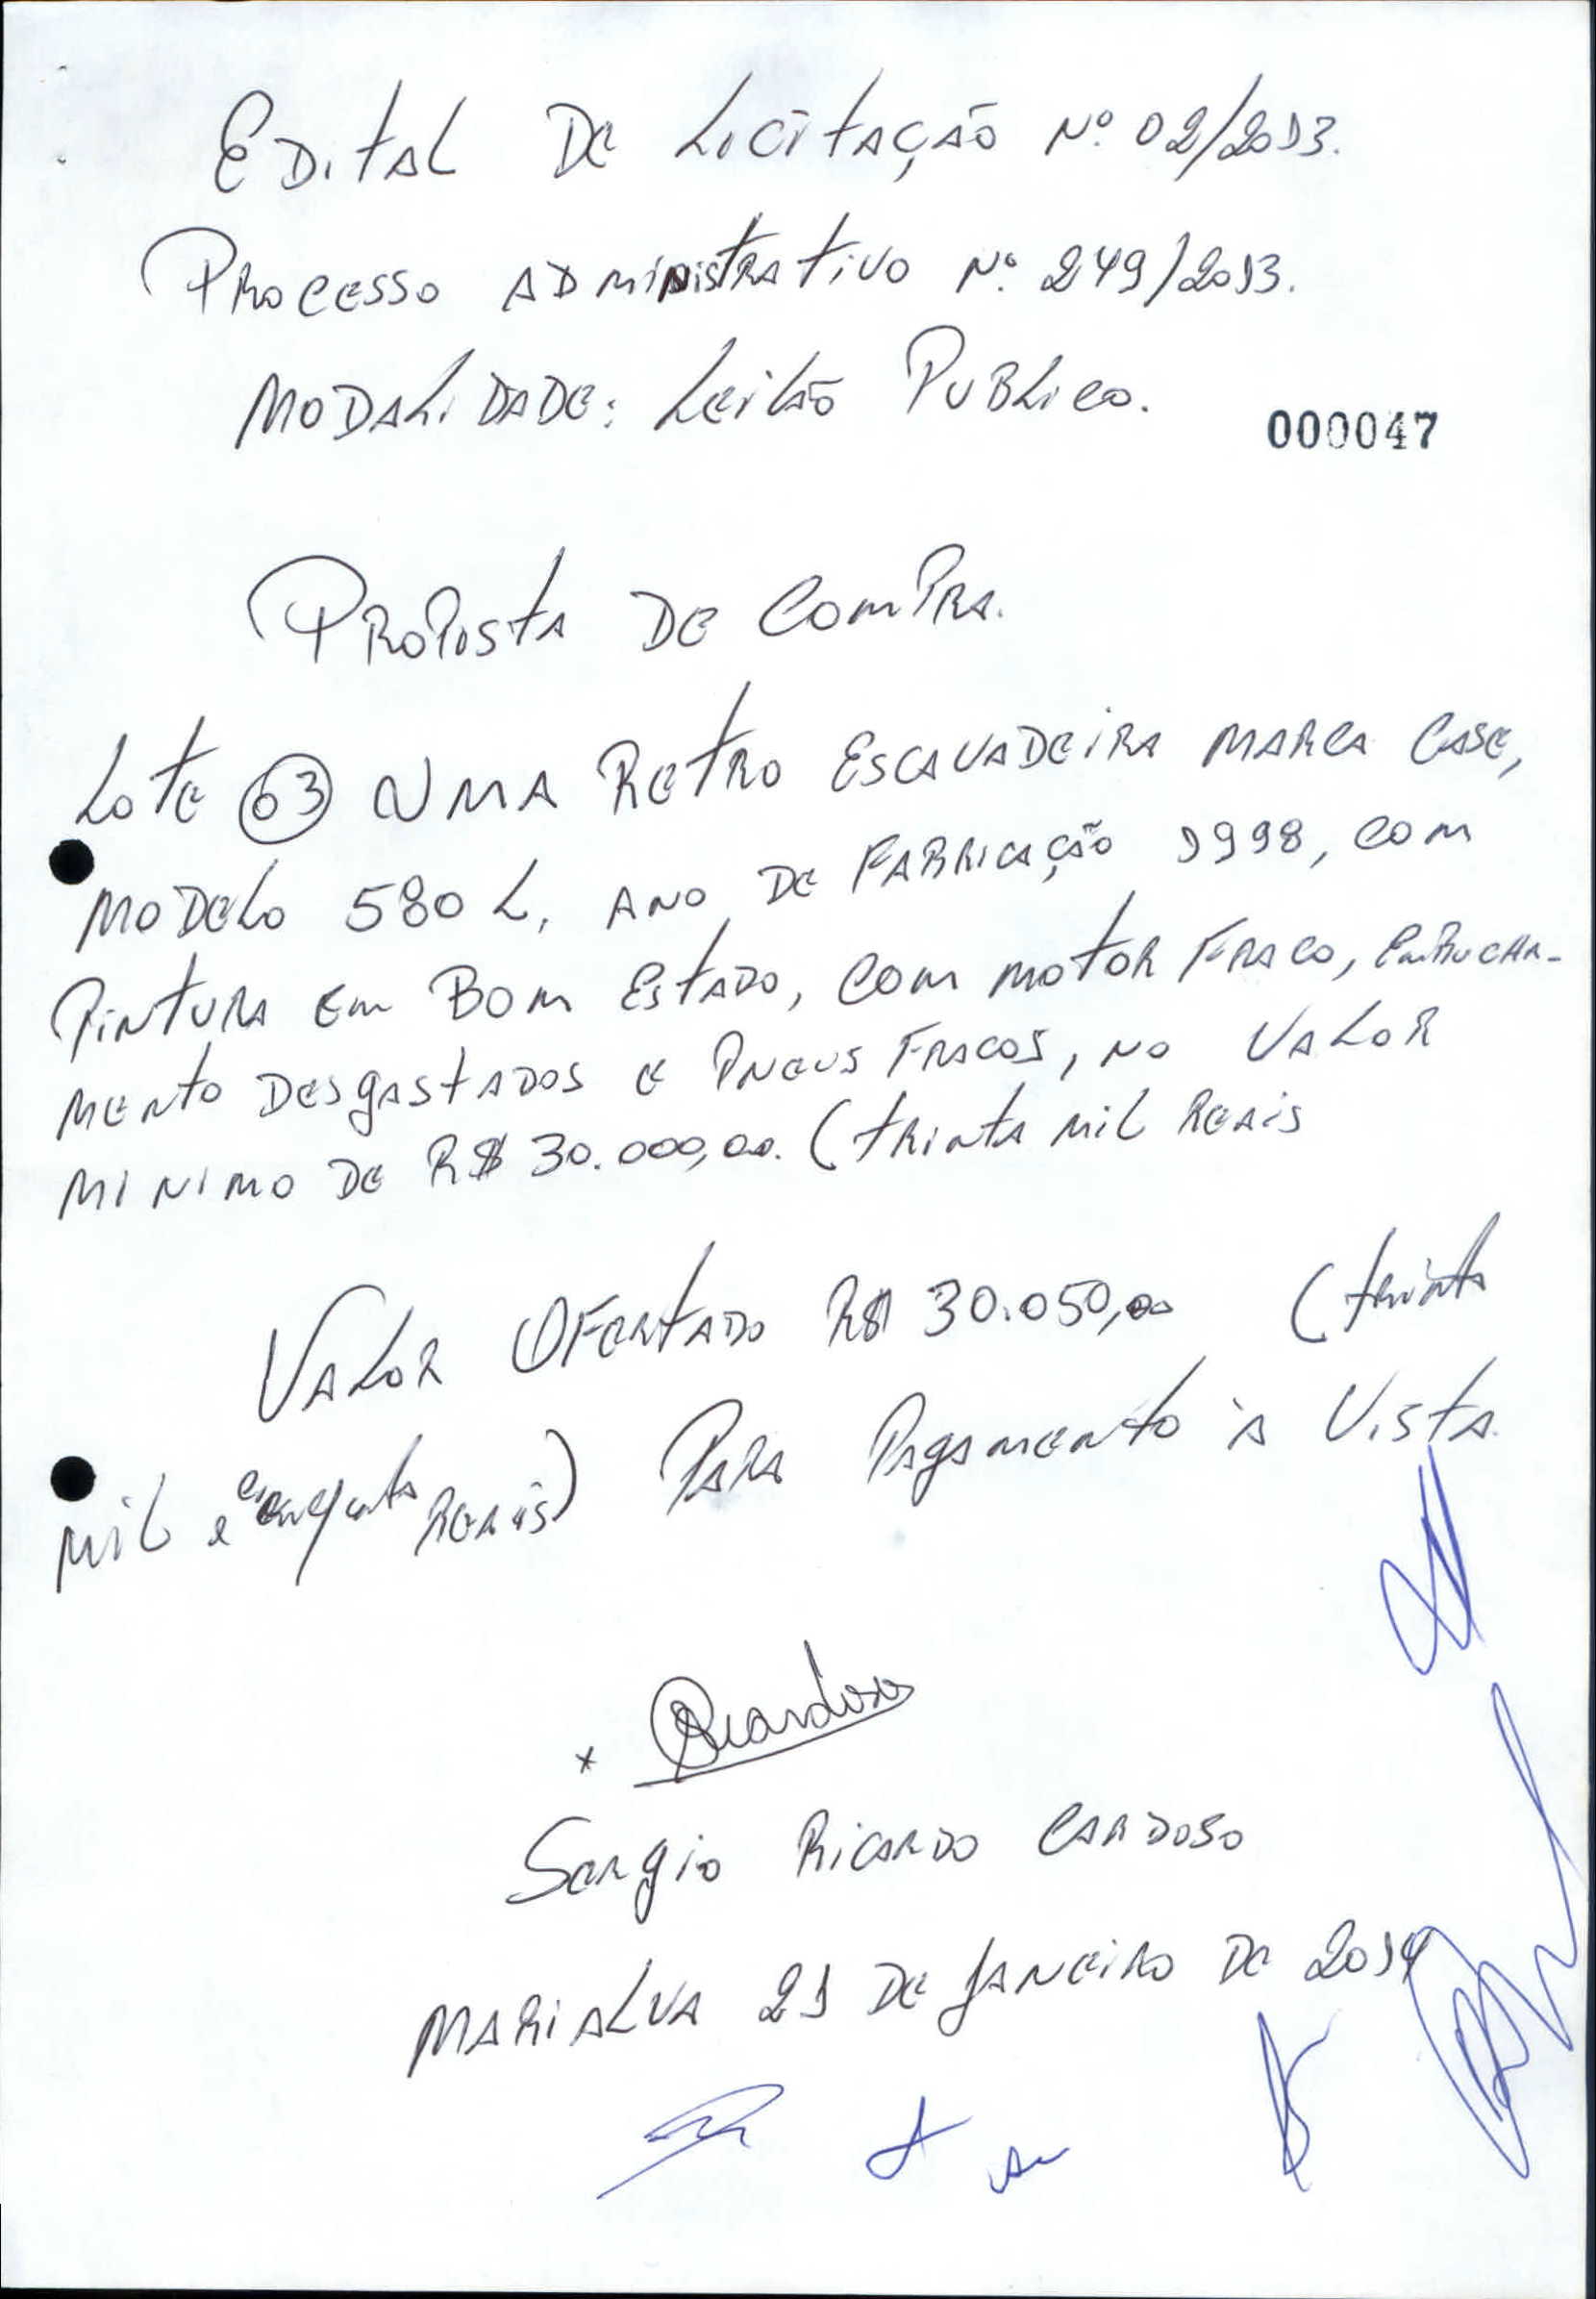 Edital de Licitação Nº 02/2013.
Processo Administrativo Nº 249/2013.
Modalidade: Leilão Publico.
000047
Proposta de Compra.
Lote 03 Uma Retro Escavadeira marca Case,
modelo 580 L, ano de Fabricação 1998, com
Pintura em Bom Estado, com motor Fraco, embucha-
mento desgastados e Pneus Fracos, no Valor
minimo de R$ 30.000,00. (trinta mil Reais
Valor Ofertado R$ 30.050,00 (trinta
mil e cinquenta Reais) Para Pagamento à Vista.
x RCardoso
Sergio Ricardo Cardoso
Marialva 21 de Janeiro de 2014